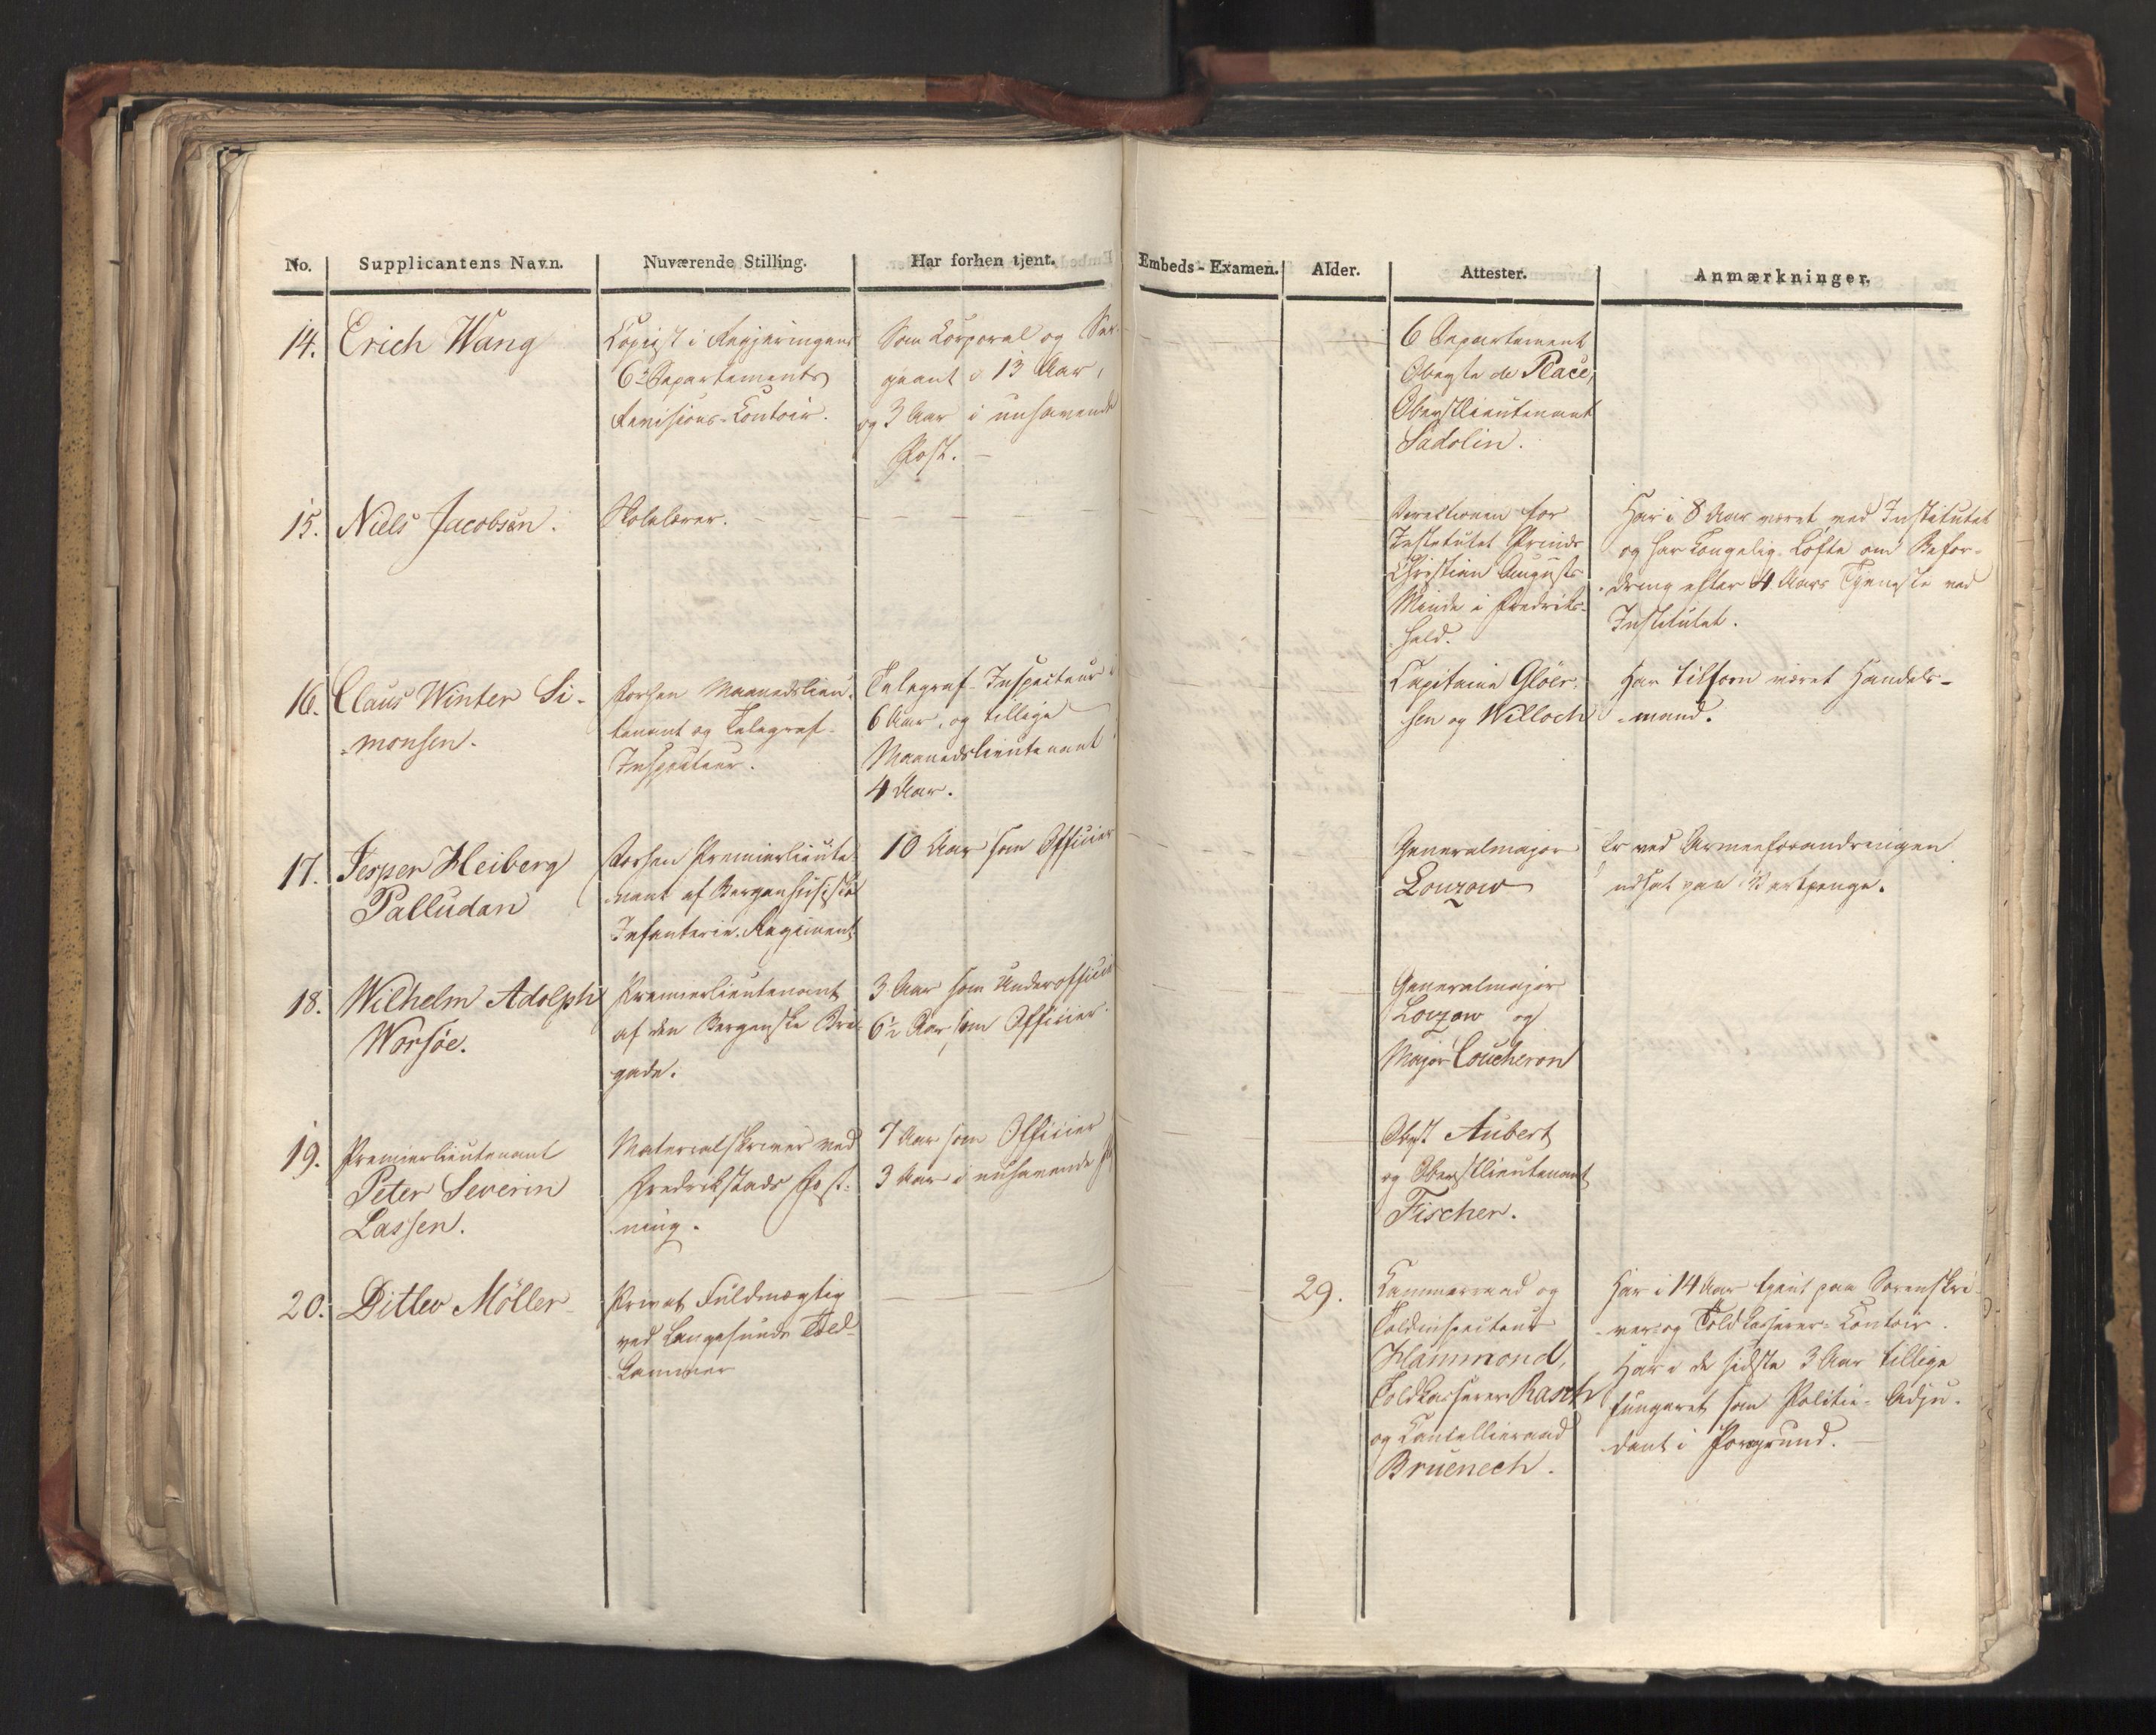 No. Supplicantens Navn. Nuværende Stilling. Har forhen tjent. Embeds-Examen. Alder. Attester. Anmærkninger.
14. Erich Wang
Copiist i Regjeringens
6te Departements
Revisions-Contoir.
Som Corporal og Ser-
geant i 13 Aar,
og 3 Aar i nuhavende
Post. —
6 Departement
Oberste de Place,
Oberstlieutenant
Sadolin.
15. Niels Jacobsen.
Skolelærer.
Directionen for
Institutet Prinds
Christian Augusts
Minde i Fredriks-
hald.
Har i 8 Aar været ved Institutet
og har Kongelig Løfte om Befor-
dring efter 4 Aars Tjeneste ved
Institutet.
16. Claus Winter Si-
monsen.
Forhen Maanedslieu-
tenant og Telegraf-
Inspecteur.
Telegraf-Inspecteur i
6 Aar, og tillige
Maanedslieutenant
4 Aar.
Capitaine Gløer-
sen og Willoch
Har tilforn været Handels-
mand.
17. Jesper Heiberg
Palludan
Forhen Premierlieute-
nant af Bergenhusiske
Infanterie-Regiment
10 Aar som Officier
Generalmajor
Lowzow
Er ved Armeeforandringen
udsat paa Vartpenge.
18. Wilhelm Adolph
Worsöe.
Premierlieutenant
af den Bergenske Bri-
gade.
3 Aar som Underofficier
6½ Aar som Officier.
Generalmajor
Lowzow og
Major Coucheron
19. Premierlieutenant
Peter Severin
Lassen.
Materialskriver ved
Fredrikstads Fæst-
ning.
7 Aar som Officier
3 Aar i nuhavende
Oberst Aubert
og Oberstlieutenant
Fischer.
20. Ditlev Möller
Privat Fuldmægtig
ved Langesunds Told-
kammer
29.
Kammerraad og
Toldinspecteur
Hammond,
Toldkasserer Rasch
og Cancellieraad
Bruenech.
Har i 14 Aar tjent paa Sorenskri-
ver og Toldkasserer-Contoir.
Har i de sidste 3 Aar tillige
fungeret som Politie-Adju-
dant i Porsgrund.